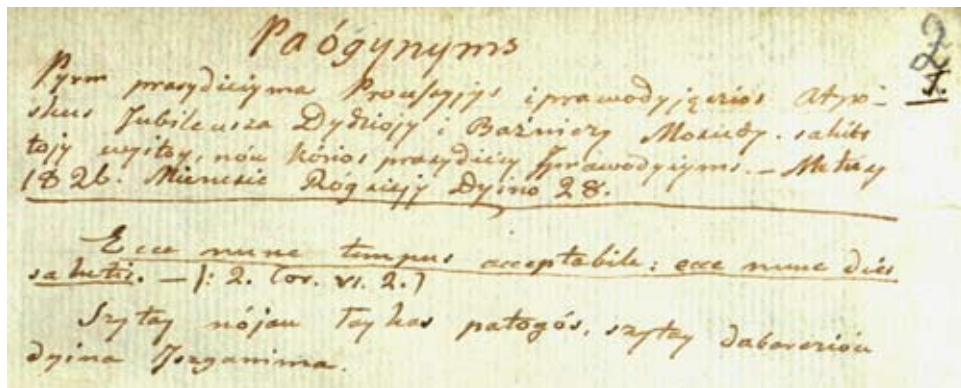 Paógynyms
2
I.
Pyrm prasydieiyma Proucyjys i prawodyjęczios Atyw-
skus Jubileusza Dydziojy i Baźniczy Mosiedy. sakits
toj wyitoy, nów kórios prasydiejy Iprawodyiyms. — Metuy
1826. Mienesie Rógsiejy Dyino 28.
Ecce nunc tempus acceptabile: ecce nunc dies
salutis. — /: 2. Cor. vi. 2.)
Szytay nójau taykas patogós, szytay dabarcziou
dyina Iszganima.